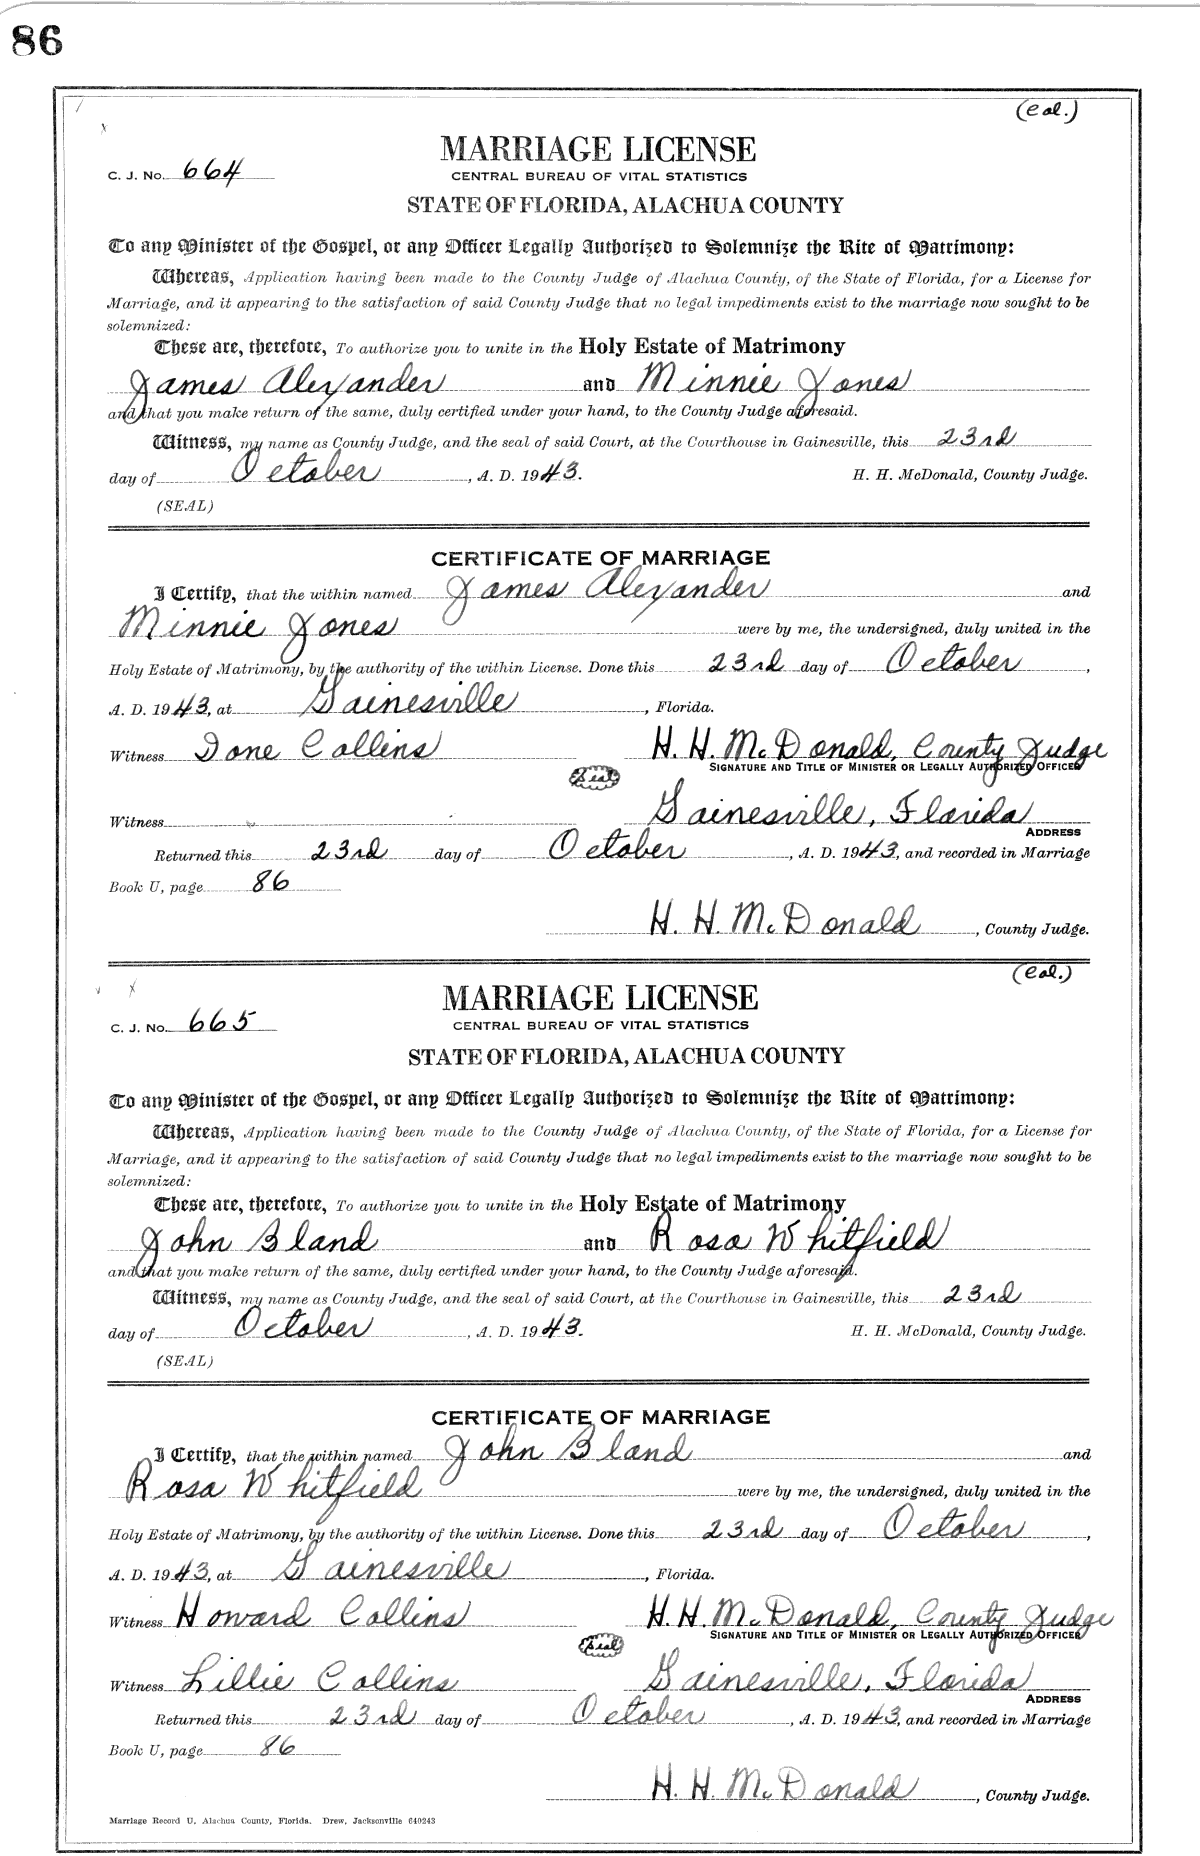 86
(Col.)
MARRIAGE LICENSE
C. J. No. 664
CENTRAL BUREAU OF VITAL STATISTICS
STATE OF FLORIDA, ALACHUA COUNTY
To any Minister of the Gospel, or any Officer Legally Authorized to Solemnize the Rite of Matrimony:
Whereas, Application having been made to the County Judge of Alachua County, of the State of Florida, for a License for
Marriage, and it appearing to the satisfaction of said County Judge that no legal impediments exist to the marriage now sought to be
solemnized:
These are, therefore, To authorize you to unite in the Holy Estate of Matrimony
James Alexander and Minnie Jones
and that you make return of the same, duly certified under your hand, to the County Judge aforesaid.
Witness, my name as County Judge, and the seal of said Court, at the Courthouse in Gainesville, this 23rd
day of October, A. D. 1943. H. H. McDonald, County Judge.
(SEAL)
CERTIFICATE OF MARRIAGE
I Certify, that the within named James Alexander and
Minnie Jones were by me, the undersigned, duly united in the
Holy Estate of Matrimony, by the authority of the within License. Done this 23rd day of October,
A. D. 1943, at Gainesville, Florida.
Witness Done Collins H. H. McDonald, County Judge
SIGNATURE AND TITLE OF MINISTER OR LEGALLY AUTHORIZED OFFICER
Seal
Witness Gainesville, Florida
ADDRESS
Returned this 23rd day of October, A. D. 1943, and recorded in Marriage
Book U, page 86
H. H. McDonald, County Judge.
(Col.)
MARRIAGE LICENSE
C. J. No. 665
CENTRAL BUREAU OF VITAL STATISTICS
STATE OF FLORIDA, ALACHUA COUNTY
To any Minister of the Gospel, or any Officer Legally Authorized to Solemnize the Rite of Matrimony:
Whereas, Application having been made to the County Judge of Alachua County, of the State of Florida, for a License for
Marriage, and it appearing to the satisfaction of said County Judge that no legal impediments exist to the marriage now sought to be
solemnized:
These are, therefore, To authorize you to unite in the Holy Estate of Matrimony
John Bland and Rosa Whitfield
and that you make return of the same, duly certified under your hand, to the County Judge aforesaid.
Witness, my name as County Judge, and the seal of said Court, at the Courthouse in Gainesville, this 23rd
day of October, A. D. 1943. H. H. McDonald, County Judge.
(SEAL)
CERTIFICATE OF MARRIAGE
I Certify, that the within named John Bland and
Rosa Whitfield were by me, the undersigned, duly united in the
Holy Estate of Matrimony, by the authority of the within License. Done this 23rd day of October,
A. D. 1943, at Gainesville, Florida.
Witness Howard Collins H. H. McDonald, County Judge
SIGNATURE AND TITLE OF MINISTER OR LEGALLY AUTHORIZED OFFICER
Seal
Witness Lillie Collins Gainesville, Florida
ADDRESS
Returned this 23rd day of October, A. D. 1943, and recorded in Marriage
Book U, page 86
H. H. McDonald, County Judge.
Marriage Record U, Alachua County, Florida. Drew, Jacksonville 640243